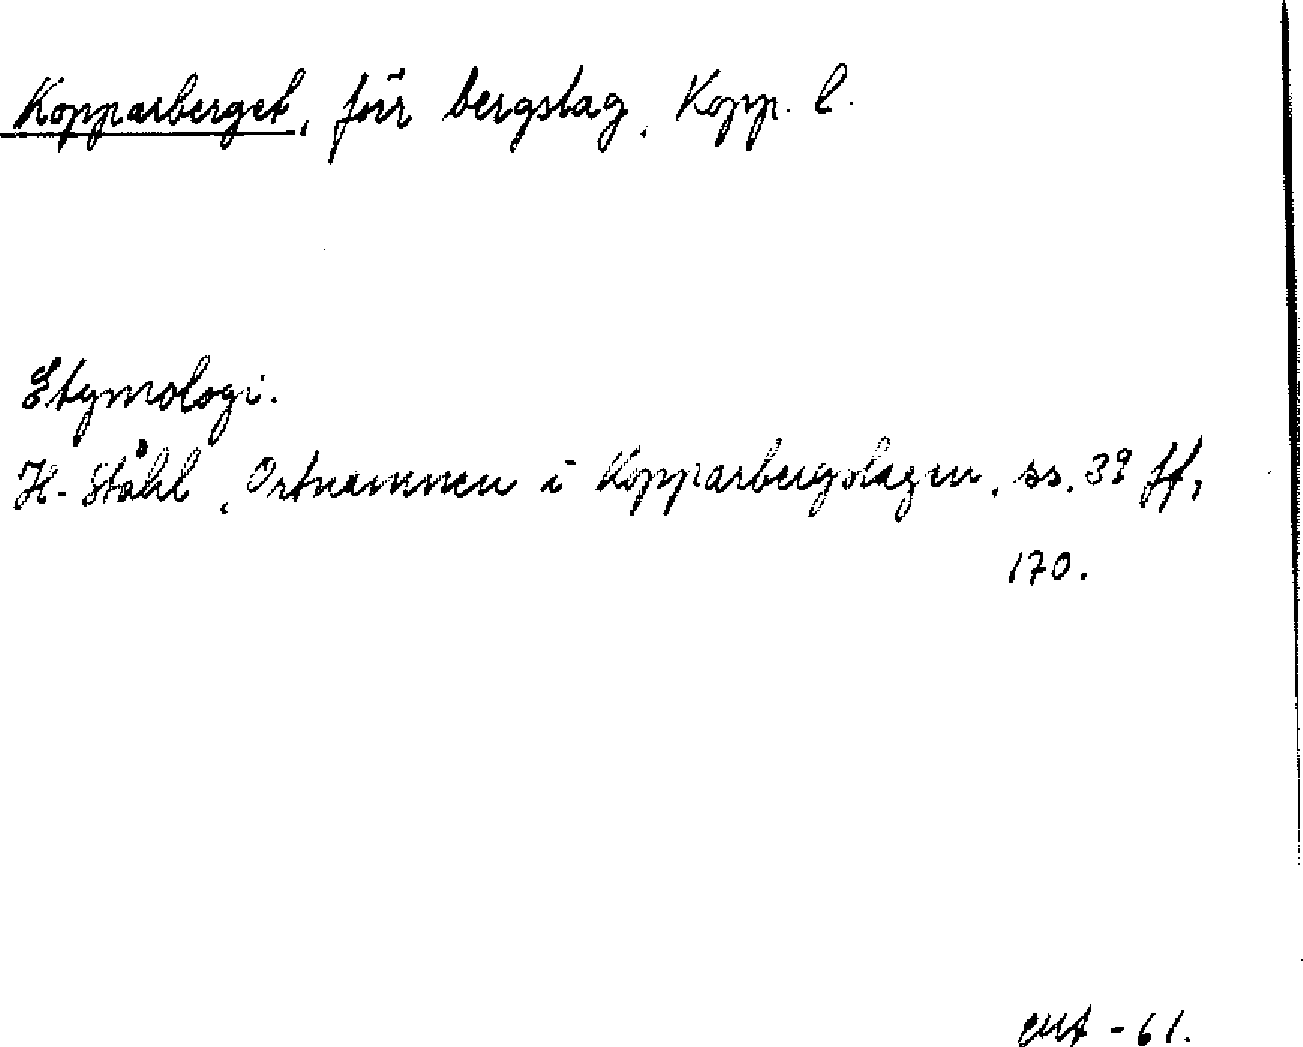 Kopparberget, förr bergslag, Kopp. l.
Etymologi.
H. Ståhl, Ortnamnen i Kopparbergslagen, ss. 39 ff,
170.
-61.